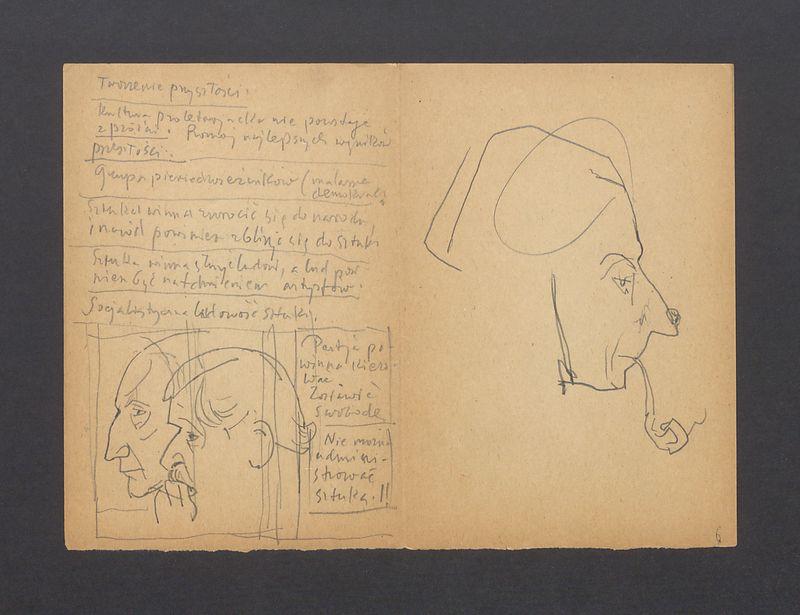 Tworzenie przyszłości.
Kultura proletariacka nie powstaje
z próżni. Rozwój najlepszych wyników
przeszłości.
Grupa pieriedwiżników (malarze
demokraci
Sztuka winna zwrócić się do narodu
i naród powinien zbliżyć się do sztuki
Sztuka winna służyć ludowi, a lud pow
nien być natchnieniem artystów.
Socjalistyczna ludowość sztuki.
Partja po-
winna kiero-
wać.
Zostawić
swobodę
Nie można
admini-
strować
sztuką.!!
6